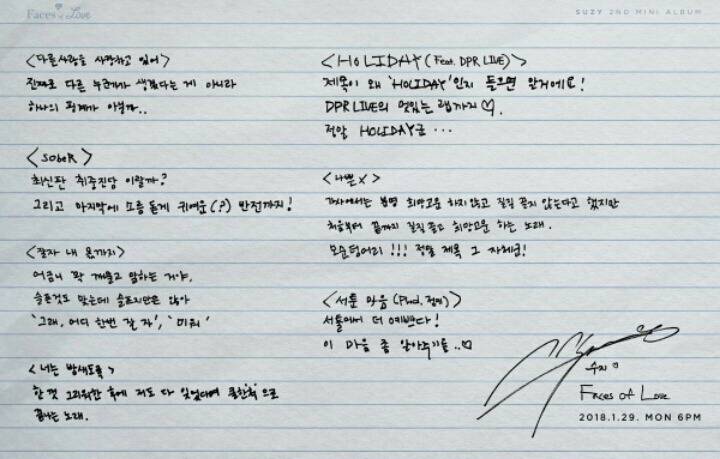 Faces of Love
SUZY 2ND MINI ALBUM
<다른사람을 사랑하고 있어>
진짜로 다른 누군가가 생겼다는 게 아니라
하나의 핑계가 아닐까..
<SObeR>
최신판 취중진담 이랄까?
그리고 마지막에 소름 돋게 귀여운(?) 반전까지!
<잘자 내 몫까지>
어금니 꽉 깨물고 말하는 거야.
슬픈것도 맞는데 슬프지만은 않아
'그래, 어디 한번 잘 자', '미워'
<너는 밤새도록>
한껏 그리워한 후에 저도 다 잊었다며 쿨한척으로
끝나는 노래.
<HOLIDAY (Feat. DPR LIVE)>
제목이 왜 'HOLIDAY'인지 들으면 알거에요!
DPR LIVE의 멋있는 랩까지♡.
정말 HOLIDAY군...
<나쁜X>
가사에서는 분명 희망고문 하지않고 질질 끌지 않는다고 했지만
처음부터 끝까지 질질 끌고 희망고문 하는 노래.
모순덩어리!!! 정말 제목 그 자체로!
<서툰 마음 (Prod. )>
서툴어서 더 예쁘다!
이 마음 좀 알아주기를..♡
수지
Faces of Love
2018.1.29. MON 6PM